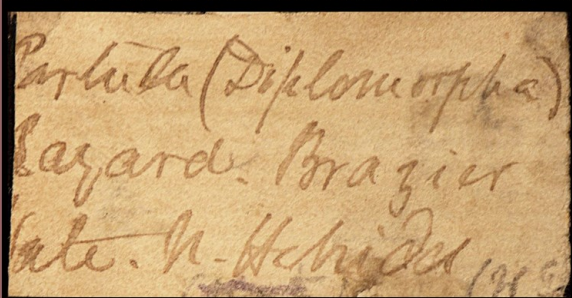 Partula (Diplomorpha)
Layard. Brazier
Vate. N. Hebrides